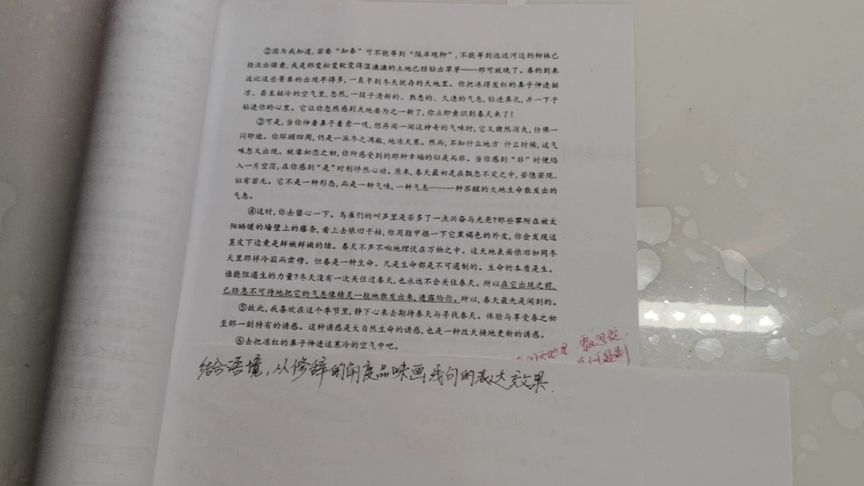 ②因为我知道,若要“知春”可不能等到“隔岸观柳”,不能等到远远河边的柳林已
经泛出绿意,或是那变松变软变得湿漉漉的土地已经钻出草芽——那可就晚了。春的到来
远比这些景象的出现早得多,一直早到冬天犹存的天地里。你把冻得发红的鼻子伸进挺
凉、甚至挺冷的空气里,忽然,一股子清新的、熟悉的、久违的气息,钻进鼻孔,并一下子
钻进你的心里。它让你忽然感到天地要为之一新了,你立即意识到春天来了!
③可是,当你伸着鼻子着意一吸,想再闻一闻这神奇的气味时,它又骤然消失,仿佛一
闪即逝。你环顾四周,仍是一派冬之凋敝,地冻天寒。然而,不知什么地方 什么时候,这气
味忽又出现。就像初恋之初,你所感受到的那种幸福的似是而非。当你感到“非”时便陷
入一片空茫,在你感到“是”时则怦然心动。原来,春天最初是在飘忽不定之中,若隐若现、
似有若无。它不是一种形态,而是一种气味,一种气息——一种苏醒的大地生命散发出的
气息。
④这时,你去留心一下。鸟雀们的叫声里是否多了一点兴奋与光亮?那些攀附在被太
阳晒暖的墙壁上的藤条,看上去依旧干枯,你用指甲抠一下它黑褐色的外皮,你会发现这
茎皮下边竟是鲜嫩鲜嫩的绿。春天不声不响地埋伏在万物之中。这天地表面依旧如同冬
天里那样冷寂而肃穆。但春是一种生命。凡是生命都是不可遏制的。生命的本质是生。
谁能阻遏生的力量?冬天没有一次关住过春天,也永远不会关住春天。所以在它出现之前,
已经急不可待地把它的气息像精灵一般地散发出来,透露给你。所以,春天最先是闻到的。
⑤故此,我喜欢在这个季节里,静下心来去期待春天与寻找春天。体验与享受春之初
至那一刻特有的诱惑。这种诱惑是大自然生命的诱惑,也是一种改天换地更新的诱惑。
⑥去把冻红的鼻子伸进这寒冷的空气中吧。
结合语境,从修辞的角度品味画线句的表达效果.